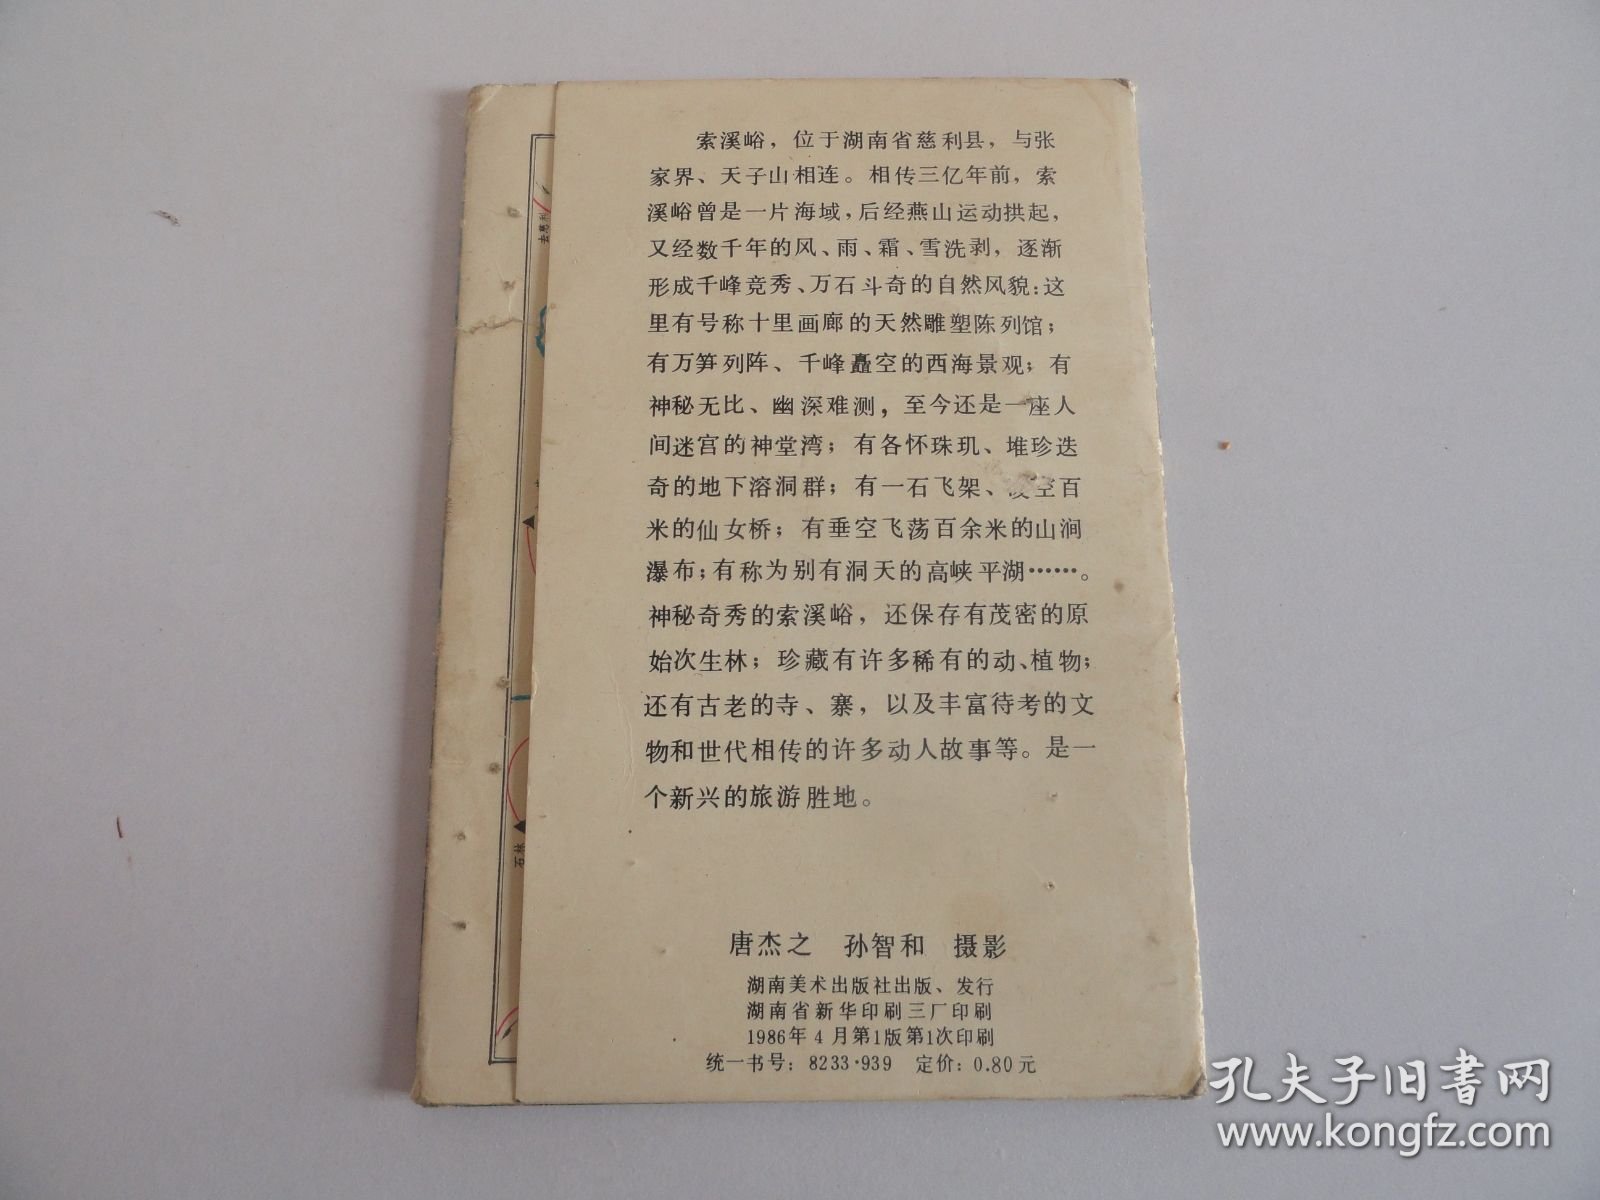 索溪峪，位于湖南省慈利县，与张
家界、天子山相连。相传三亿年前，索
溪峪曾是一片海域，后经燕山运动拱起，
又经数千年的风、雨、霜、雪洗剥，逐渐
形成千峰竞秀、万石斗奇的自然风貌：这
里有号称十里画廊的天然雕塑陈列馆；
有万笋列阵、千峰矗空的西海景观；有
神秘无比、幽深难测，至今还是一座人
间迷宫的神堂湾；有各怀珠玑、堆珍迭
奇的地下溶洞群；有一石飞架、凌空百
米的仙女桥；有垂空飞荡百余米的山涧
瀑布；有称为别有洞天的高峡平湖……。
神秘奇秀的索溪峪，还保存有茂密的原
始次生林；珍藏有许多稀有的动、植物；
还有古老的寺、寨，以及丰富待考的文
物和世代相传的许多动人故事等。是一
个新兴的旅游胜地。
唐杰之 孙智和 摄影
湖南美术出版社出版、发行
湖南省新华印刷三厂印刷
1986年4月第1版第1次印刷
统一书号：8233·939 定价：0.80元
去慈利
石林
孔夫子旧书网
www.kongfz.com